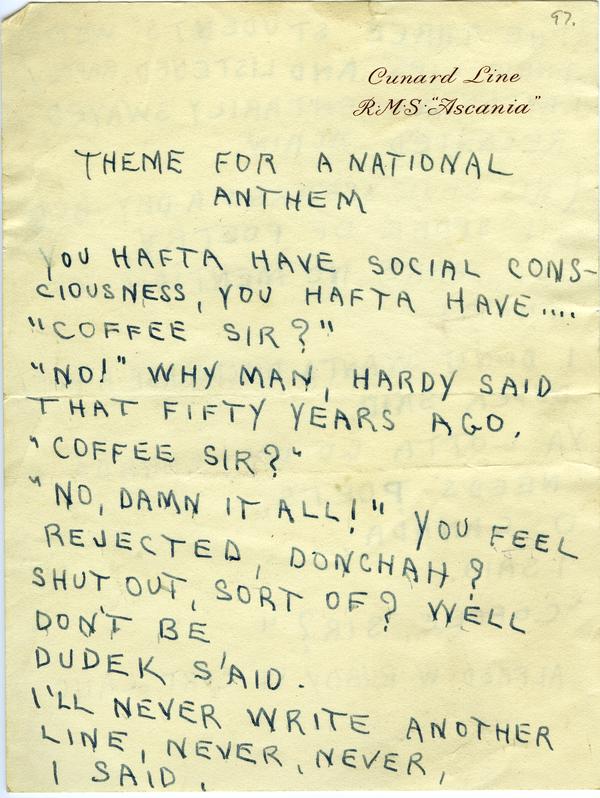 97.
Cunard Line
R.M.S. "Ascania"
THEME FOR A NATIONAL
ANTHEM
YOU HAFTA HAVE SOCIAL CONS-
CIOUSNESS, YOU HAFTA HAVE....
"COFFEE SIR?"
"NO!" WHY MAN, HARDY SAID
THAT FIFTY YEARS AGO.
"COFFEE SIR?"
"NO, DAMN IT ALL!" YOU FEEL
REJECTED, DONCHAH?
SHUT OUT, SORT OF? WELL
DON'T BE
DUDEK S'AID.
I'LL NEVER WRITE ANOTHER
LINE, NEVER, NEVER,
I SAID,